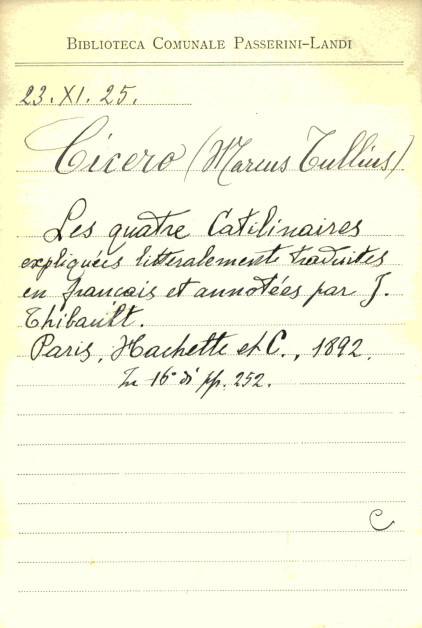 BIBLIOTECA COMUNALE PASSERINI-LANDI
23.XI.25.
Cicero (Marcus Tullius)
Les quatre Catilinaires
expliquées litteralemente traduites
en français et annotées par J.
Thibault.
Paris, Hachette et C., 1892.
In 16° di pp. 252.
C